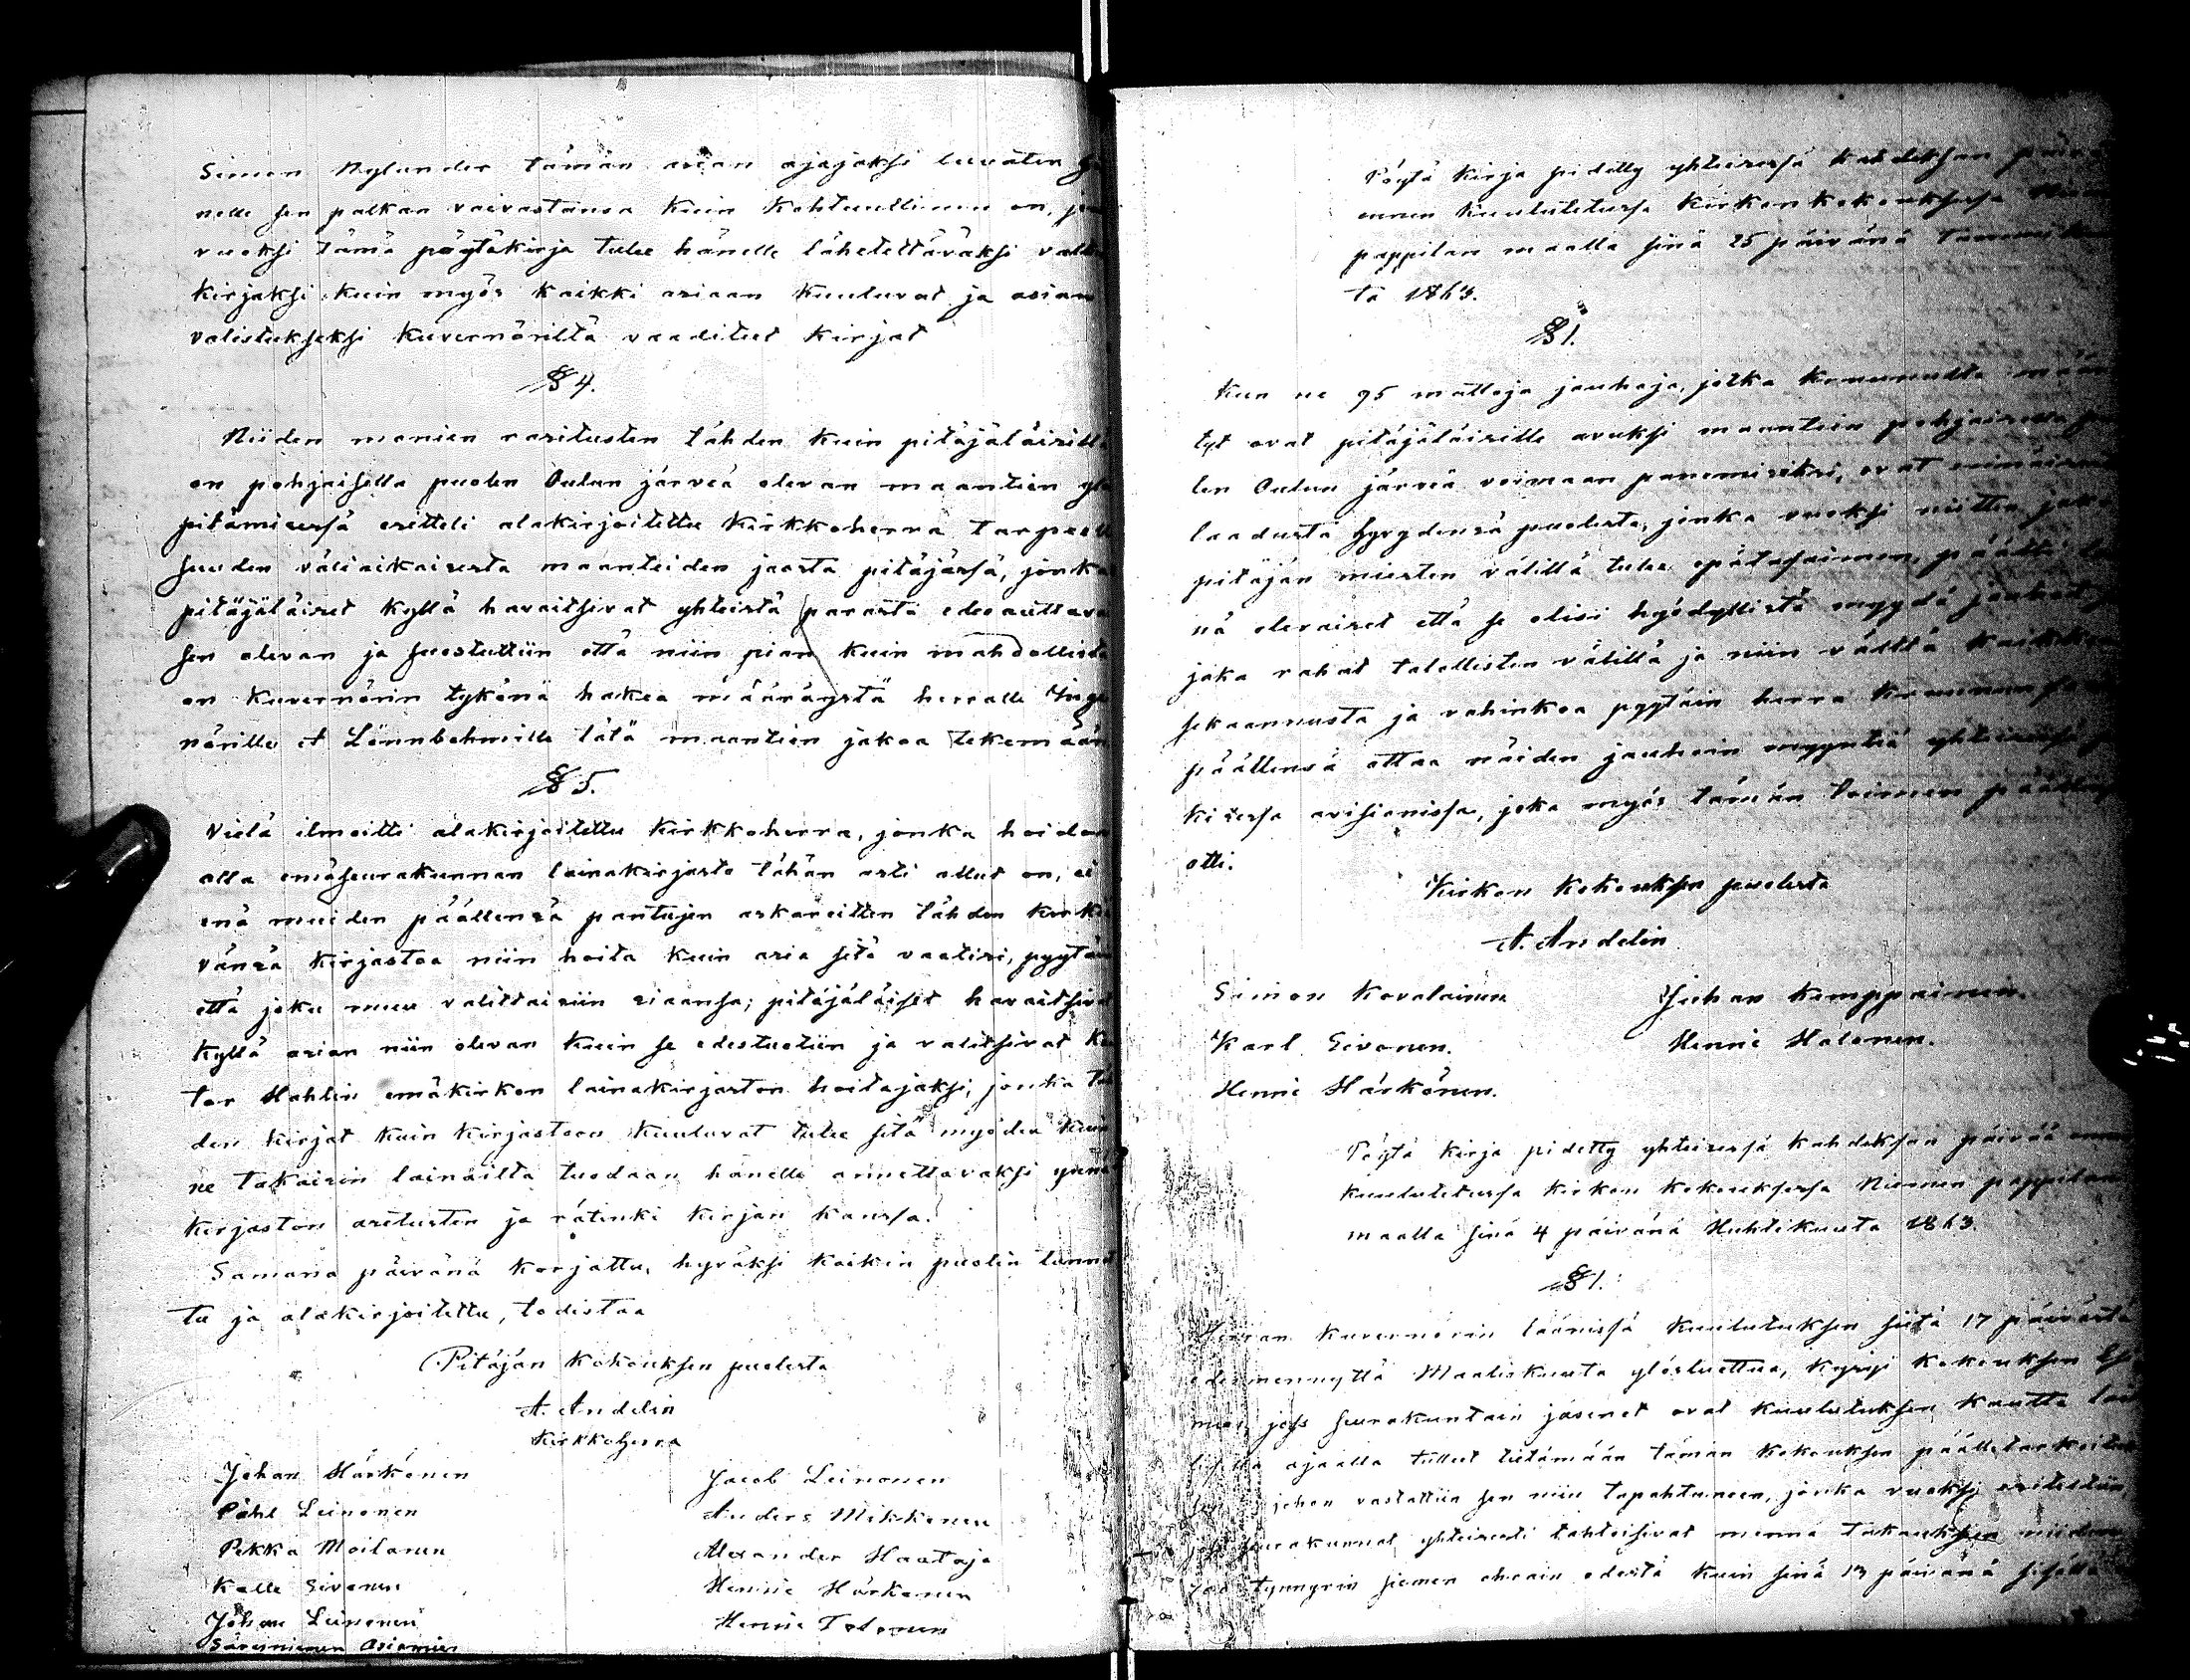 Simon Nylander tämän asian ajajaksi luvaten
nelle sen palkan vaivastansa kuin kohtuullinen on,
vuoksi tämä pöytäkirja tulee hänelle lähetettäväksi
kirjaksi kuin myös kaikki asiaan kuuluvat ja asian
valistukseksi kuvernöriltä vaaditut kirjat
§ 4.
Niiden monien rasitusten tähden kuin pitäjäläisillä
on pohjaisella puolen Oulun järveä olevan maantien
pitämisessä esitteli alakirjoitettu kirkkoherra
suuden väliaikaisesta maanteiden jaosta pitäjässä, jonka
pitäjäläiset kyllä havaitsivat yhteistä parasta edesauttava
sen olevan ja suostuttiin että niin pian kuin mahdollista
on kuvernörin tykönä hakea määräystä herralle
nörille A Lönnbohmille tätä maantien jakoa tekemään
§ 5.
Vielä ilmoitti alakirjoitettu kirkkoherra, jonka hoidon
alla emäseurakunnan lainakirjasto tähän asti ollut on, ei
enä muiden päällensä pantujen askareitten tähden
vänsä kirjastoa niin hoita kuin asia sitä vaatisi, pyytäin
että joku muu valittaisiin siaansa; pitäjäläiset havaitsivat
kyllä asian niin olevan kuin se edestuotiin ja valitsivat
tor Hahlin emäkirkon lainakirjaston hoitajaksi, jonka
den kirjat kuin kirjastoon kuuluvat tulee sitä myöden kuin
ne takaisin lainailta tuodaan hänelle annettavaksi ynnä
kirjaston asetusten ja rätinki kirjan kanssa.
Samana päivänä korjattu, hyväksi kaikin puolin tunnet
tu ja alakirjoitettu, todistaa
Pitäjän kokouksen puolesta
A. Andelin
Kirkkoherra
Johan Härkönen Jacob Leinonen
Påhl Leinonen Anders Mikkonen
Pekka Moilanen Alexander Hautaja
Kalle Sivonen Hennie Härkönen
Johan Leinonen Hennie Tolonen
Säräisniemen Asiamies
Pöytä kirja pidetty yhteisessä kahdeksan päivä
ennen kuulutetussa kirkonkokouksessa
pappilan maalla sinä 25 päivänä Tammikuu
ta 1863.
§ 1.
Kun ne 95 mattoja jauhoja, jotka kruunulta
tyt ovat pitäjäläisille avuksi maantein pohjaisella
len Oulun järveä voimaan panemiseksi, ovat
laadusta hyvydensä puolesta, jonka vuoksi niitten jako
pitäjän miesten välillä tulee epätasainen, päätti
nä olevaiset että se olisi hyödyllistä myydä jauhot
jaka rahat talollisten välillä ja niin välttä kaikki
sekaannusta ja vahinkoa pyytäin herra kruunun
päällensä ottaa näiden jauhoin myyntiä yhteisessä
kisessa avisionissa, joka myös tämän toimen päällensä
otti.
Kirkon kokouksen puolesta
A. Andelin
Simon Kovalainen Juhan Kemppainen.
Karl Sivonen. Hennie Halonen.
Hennie Härkönen.
Pöytä kirja pidetty yhteisessä kahdeksan päivää ennen
kuulutetussa kirkon kokouksessa Niemen pappilan
maalla sinä 4 päivänä Huhtikuuta 1863.
§ 1.
Herran kuvernörin läänissä kuulutuksen siitä 17 päivästä
edesmennyttä Maaliskuuta ylösluettua, kysyi kokouksen
mies, jos seurakuntain jäsenet ovat kuulutuksen kautta
ajalla tullut tietämään tämän kokouksen päälletarkoitus
johon vastattiin sen niin tapahtuneen, jonka vuoksi esiteltiin,
jos seurakunnat yhteisesti tahtoisivat mennä takaukseen niiden
tynnyrin siemen ohrain edestä kuin sinä 13 päivänä